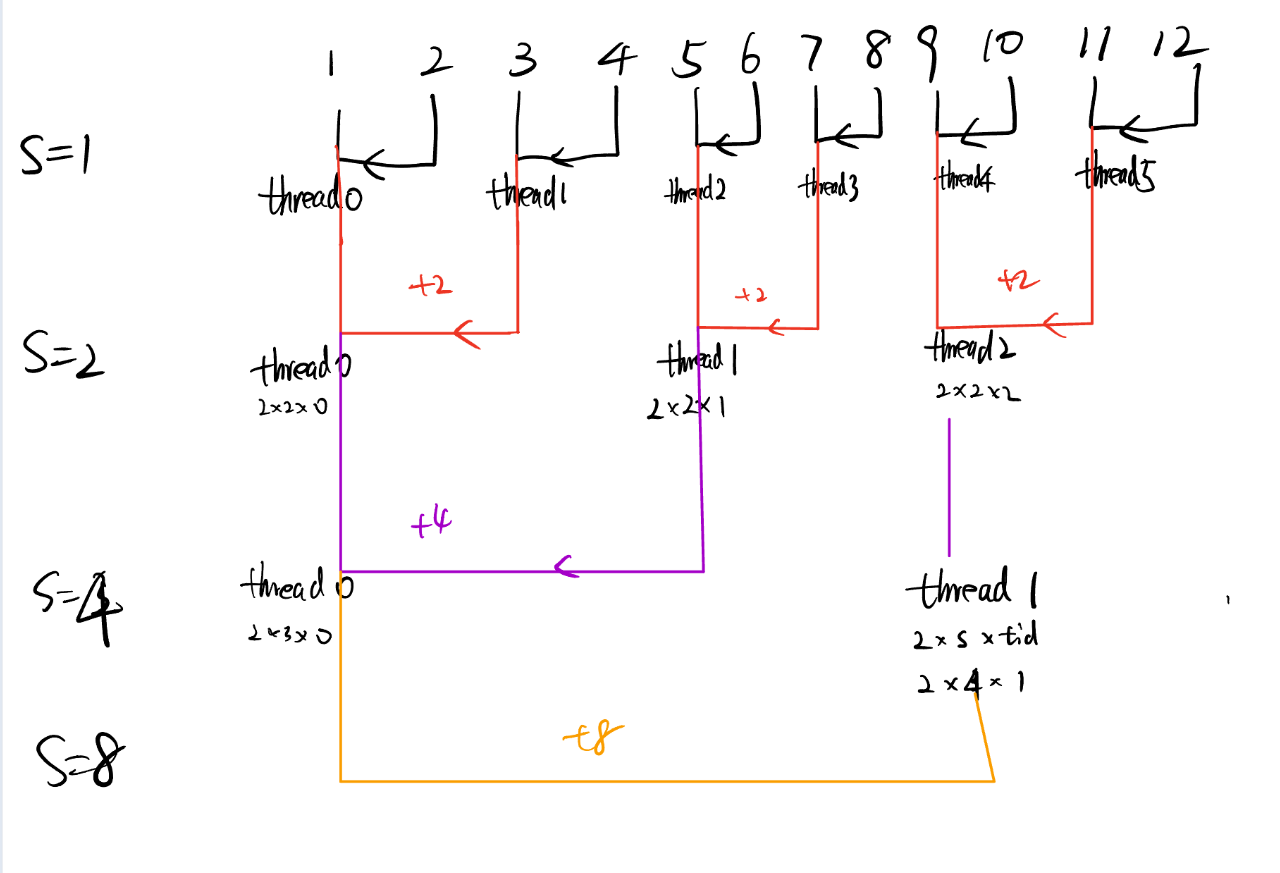 1 2 3 4 5 6 7 8 9 10 11 12
S=1
thread0 thread1 thread2 thread3 thread4 thread5
+2 +2 +2
S=2
thread0 thread1 thread2
2×2×0 2×2×1 2×2×2
+4
S=4
thread0 thread1
2×3×0 2×s×tid
2×4×1
+8
S=8